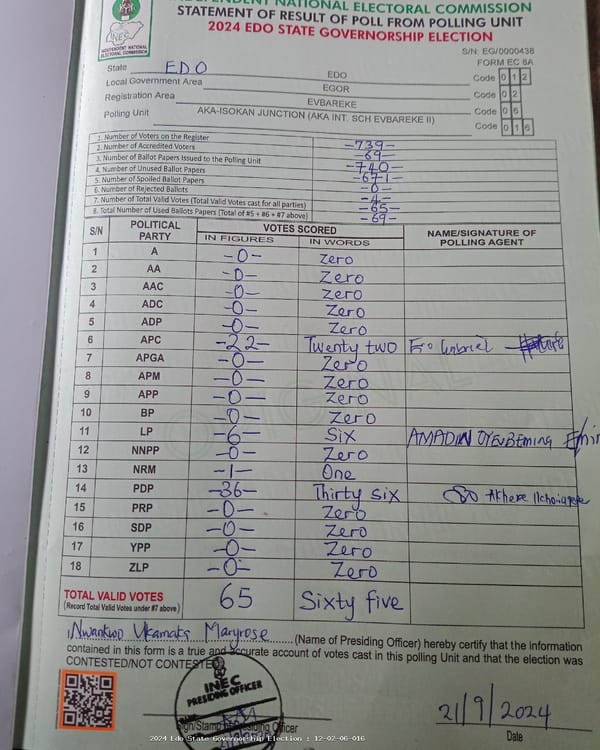 INDEPENDENT NATIONAL ELECTORAL COMMISSION
STATEMENT OF RESULT OF POLL FROM POLLING UNIT
2024 EDO STATE GOVERNORSHIP ELECTION
INEC
INDEPENDENT NATIONAL ELECTORAL COMMISSION
S/N: EG/0000438
FORM EC 8A
State EDO EDO Code 0 1 2
Local Government Area EGOR Code 0 2
Registration Area EVBAREKE Code 0 6
Polling Unit AKA-ISOKAN JUNCTION (AKA INT. SCH EVBAREKE II) Code 0 1 6
1. Number of Voters on the Register -739-
2. Number of Accredited Voters -69-
3. Number of Ballot Papers Issued to the Polling Unit -740-
4. Number of Unused Ballot Papers -671-
5. Number of Spoiled Ballot Papers -0-
6. Number of Rejected Ballots -4-
7. Number of Total Valid Votes (Total Valid Votes cast for all parties) -65-
8. Total Number of Used Ballots Papers (Total of #5 + #6 + #7 above) -69-
S/N POLITICAL PARTY VOTES SCORED NAME/SIGNATURE OF POLLING AGENT
IN FIGURES IN WORDS
1 A -0- Zero
2 AA -0- Zero
3 AAC -0- Zero
4 ADC -0- Zero
5 ADP -0- Zero
6 APC -22- Twenty two
7 APGA -0- Zero
8 APM -0- Zero
9 APP -0- Zero
10 BP -0- Zero
11 LP -6- Six AMADIN
12 NNPP -0- Zero
13 NRM -1- One
14 PDP -36- Thirty six
15 PRP -0- Zero
16 SDP -0- Zero
17 YPP -0- Zero
18 ZLP -0- Zero
TOTAL VALID VOTES 65 Sixty five
(Record Total Valid Votes under #7 above)
I Nwankwo Ukamaka Maryrose (Name of Presiding Officer) hereby certify that the information
contained in this form is a true and accurate account of votes cast in this polling Unit and that the election was
CONTESTED/NOT CONTESTED
INEC
PRESIDING OFFICER
Sign/Stamp of Presiding Officer
21/9/2024
Date
2024 Edo State Governorship Election : 12-02-06-016